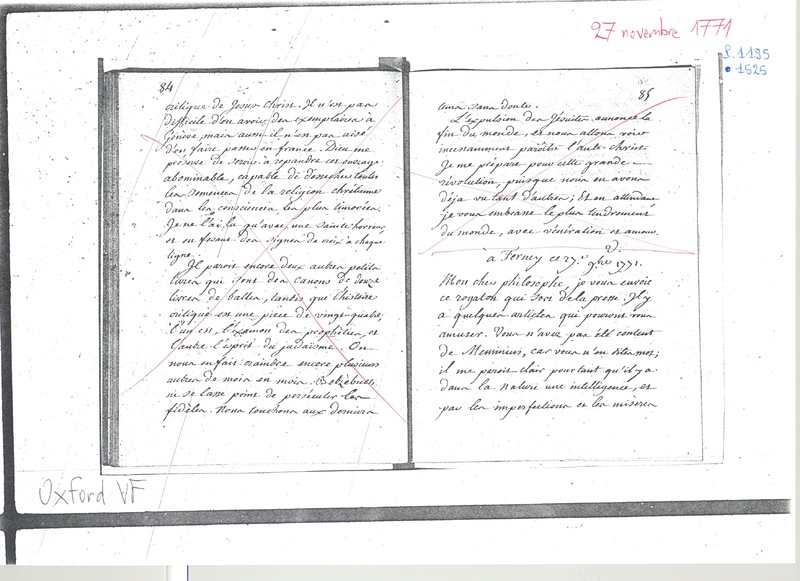 27 novembre 1771
S. 1195
• 1525
84
critique de Jesus Christ. Il n'est pas
difficile d'en avoir des exemplaires à
Genève, mais aussi il n'est pas aisé
d'en faire passer en france. Dieu me
préserve de servir à répandre cet ouvrage
abominable, capable de dessecher toutes
les semences de la religion chrétienne
dans les consciences les plus timorées.
Je ne l'ai lu qu'avec une sainte horreur,
et en fesant des signes de croix à chaque
ligne.
Il paroit encore deux autres petits
livres qui sont des canons de douze
livres de balles, tandis que l'histoire
critique est une piece de vingt-quatre.
L'un est, l'éxamen des prophéties, et
l'autre l'esprit du judaïsme. On
nous en fait craindre encore plusieurs
autres de mois en mois. Belzebuth
ne se lasse point de persécuter les
fidèles. Nous touchons aux derniers
85
tems sans doute.
L'expulsion des Jésuites annonce la
fin du monde, et nous allons voir
incessamment paroître l'ante christ.
Je me prépare pour cette grande
révolution, puisque nous en avons
déja vu tant d'autres; Et en attendant
je vous embrasse le plus tendrement
du monde, avec vénération et amour.
V.
à Ferney ce 27.e 9bre 1771.
Mon cher philosophe, je vous envoie
ce rogaton qui sort de la presse. Il y
a quelques articles qui pouront vous
amuser. Vous n'avez pas été content
de Memmius, car vous n'en dites mot;
il me paroit clair pourtant qu'il y a
dans la nature une intelligence, et
par les imperfections et les miseres
Oxford VF